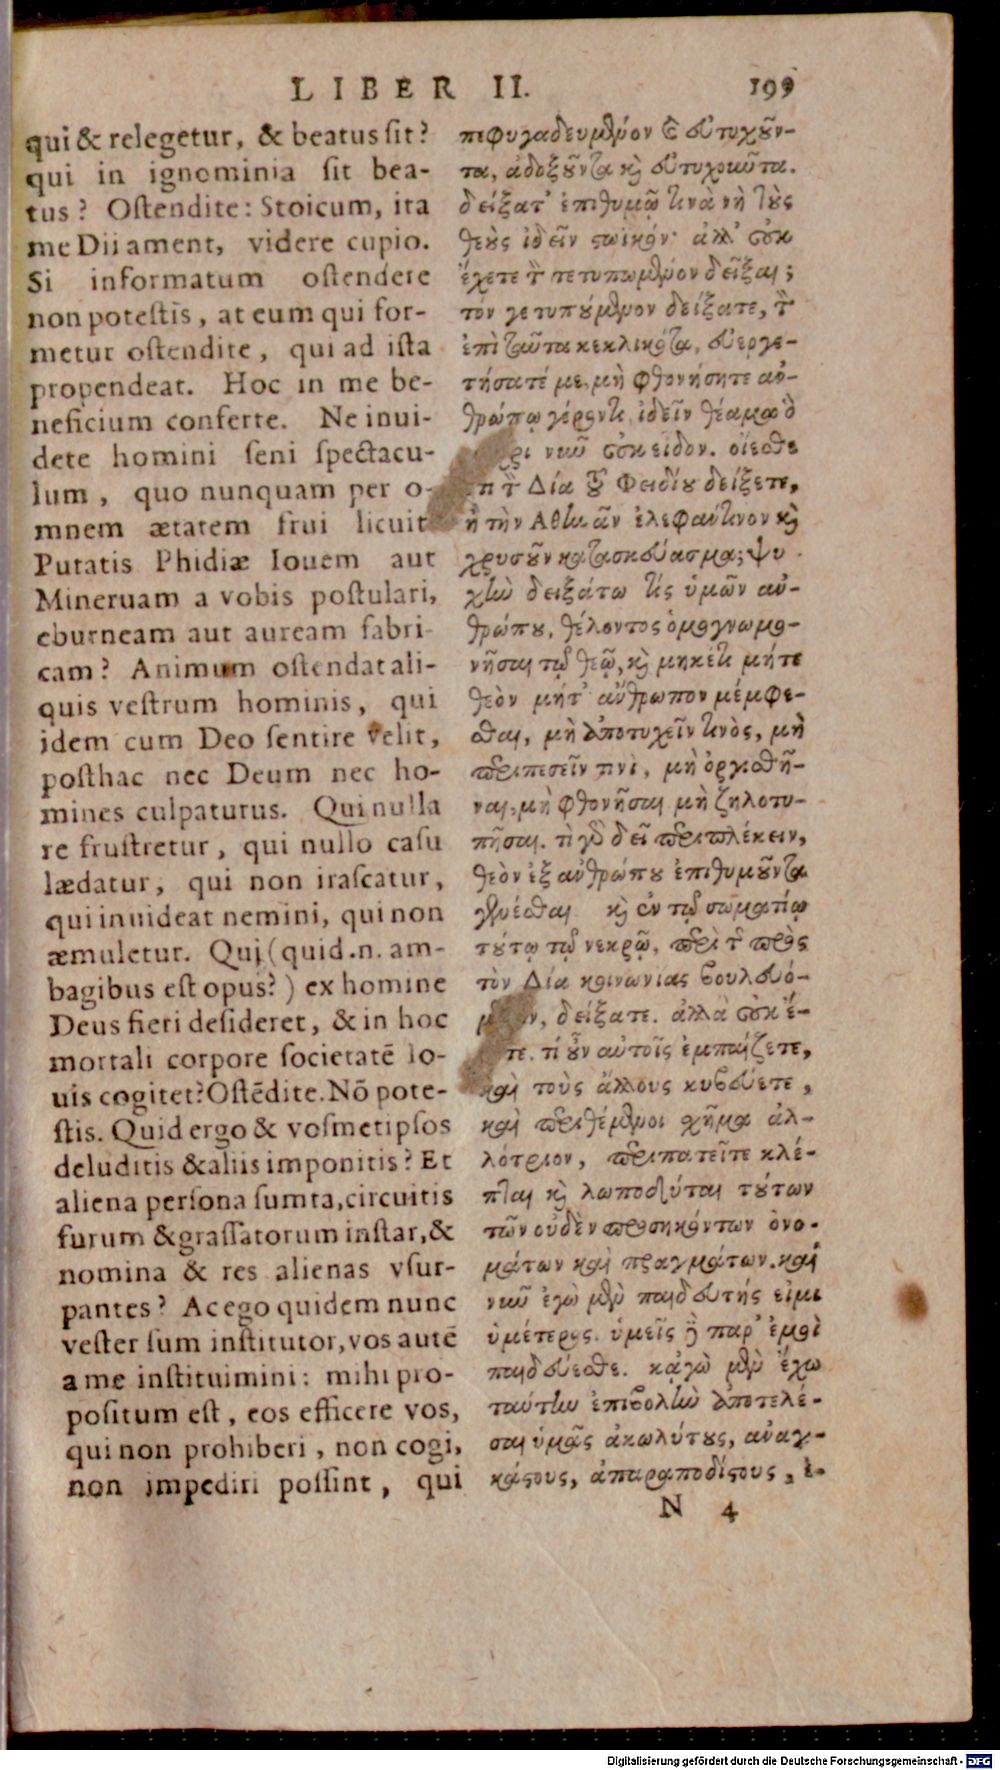 LIBER II. 199
qui & relegetur, & beatus sit?
qui in ignominia sit bea-
tus? Ostendite: Stoicum, ita
me Dii ament, videre cupio.
Si informatum ostendere
non potestis, at eum qui for-
metur ostendite, qui ad ista
propendeat. Hoc in me be-
neficium conferte. Ne inui-
dete homini seni spectacu-
lum, quo nunquam per o-
mnem ætatem frui licuit
Putatis Phidiæ Iouem aut
Mineruam a vobis postulari,
eburneam aut auream fabri-
cam? Animum ostendat ali-
quis vestrum hominis, qui
idem cum Deo sentire velit,
posthac nec Deum nec ho-
mines culpaturus. Qui nulla
re frustretur, qui nullo casu
lædatur, qui non irascatur,
qui inuideat nemini, qui non
æmuletur. Qui (quid .n. am-
bagibus est opus?) ex homine
Deus fieri desideret, & in hoc
mortali corpore societatē Io-
uis cogitet? Ostēdite. Nō pote-
stis. Quid ergo & vosmetipsos
deluditis & aliis imponitis? Et
aliena persona sumta, circuitis
furum & grassatorum instar, &
nomina & res alienas vsur-
pantes? Ac ego quidem nunc
vester sum institutor, vos autē
a me instituimini: mihi pro-
positum est, eos efficere vos,
qui non prohiberi, non cogi,
non impediri possint, qui
πεφυγαδευμένον καὶ εὐτυχοῦν-
τα, ἀδοξοῦντα καὶ εὐτυχοῦντα.
δείξατ' ἐπιθυμῶ τινὰ νὴ τοὺς
θεοὺς ἰδεῖν στωικόν· ἀλλ' οὐκ
ἔχετε τὸν τετυπωμένον δεῖξαι;
τόν γε τυπούμενον δείξατε, τὸν
ἐπὶ ταῦτα κεκλικότα, εὐεργε-
τήσατέ με, μὴ φθονήσητε ἀν-
θρώπῳ γέροντι, ἰδεῖν θέαμα ὃ
ρι νῦν οὐκ εἶδον. οἴεσθε
τὸν Δία τοῦ Φειδίου δείξετε,
ἢ τὴν Ἀθηνᾶν ἐλεφάντινον καὶ
χρυσοῦν κατασκεύασμα; ψυ
χὴν δειξάτω τίς ὑμῶν ἀν-
θρώπου, θέλοντος ὁμογνωμο-
νῆσαι τῷ θεῷ, καὶ μηκέτι μήτε
θεὸν μήτ' ἄνθρωπον μέμφε-
σθαι, μὴ ἀποτυχεῖν τινὸς, μὴ
περιπεσεῖν τινὶ, μὴ ὀργισθῆ-
ναι, μὴ φθονῆσαι, μὴ ζηλοτυ-
πῆσαι. τὶ γὰρ δεῖ περιπλέκειν,
θεὸν ἐξ ἀνθρώπου ἐπιθυμοῦντα
γενέσθαι καὶ ἐν τῷ σωματίῳ
τούτῳ τῷ νεκρῷ, περὶ τῆς πρὸς
τὸν Δία κοινωνίας βουλευό-
μενον, δείξατε. ἀλλὰ οὐκ ἔ-
τε. τί οὖν αὑτοῖς ἐμπαίζετε,
καὶ τοὺς ἄλλους κυβεύετε,
καὶ περιθέμενοι σχῆμα ἀλ-
λότριον, περιπατεῖτε κλέ-
πται καὶ λωποδύται τούτων
τῶν οὐδὲν προσηκόντων ὀνο-
μάτων καὶ πραγμάτων. καὶ
νῦν ἐγὼ μὲν παιδευτής εἰμι
ὑμέτερος. ὑμεῖς δὲ παρ' ἐμοὶ
παιδεύεσθε. κἀγὼ μὲν ἔχω
ταύτην ἐπιβολὴν ἀποτελέ-
σαι ὑμᾶς ἀκωλύτους, ἀναγ-
κάστους, ἀπαραποδίστους, ἐ-
N 4
Digitalisierung gefördert durch die Deutsche Forschungsgemeinschaft - DFG